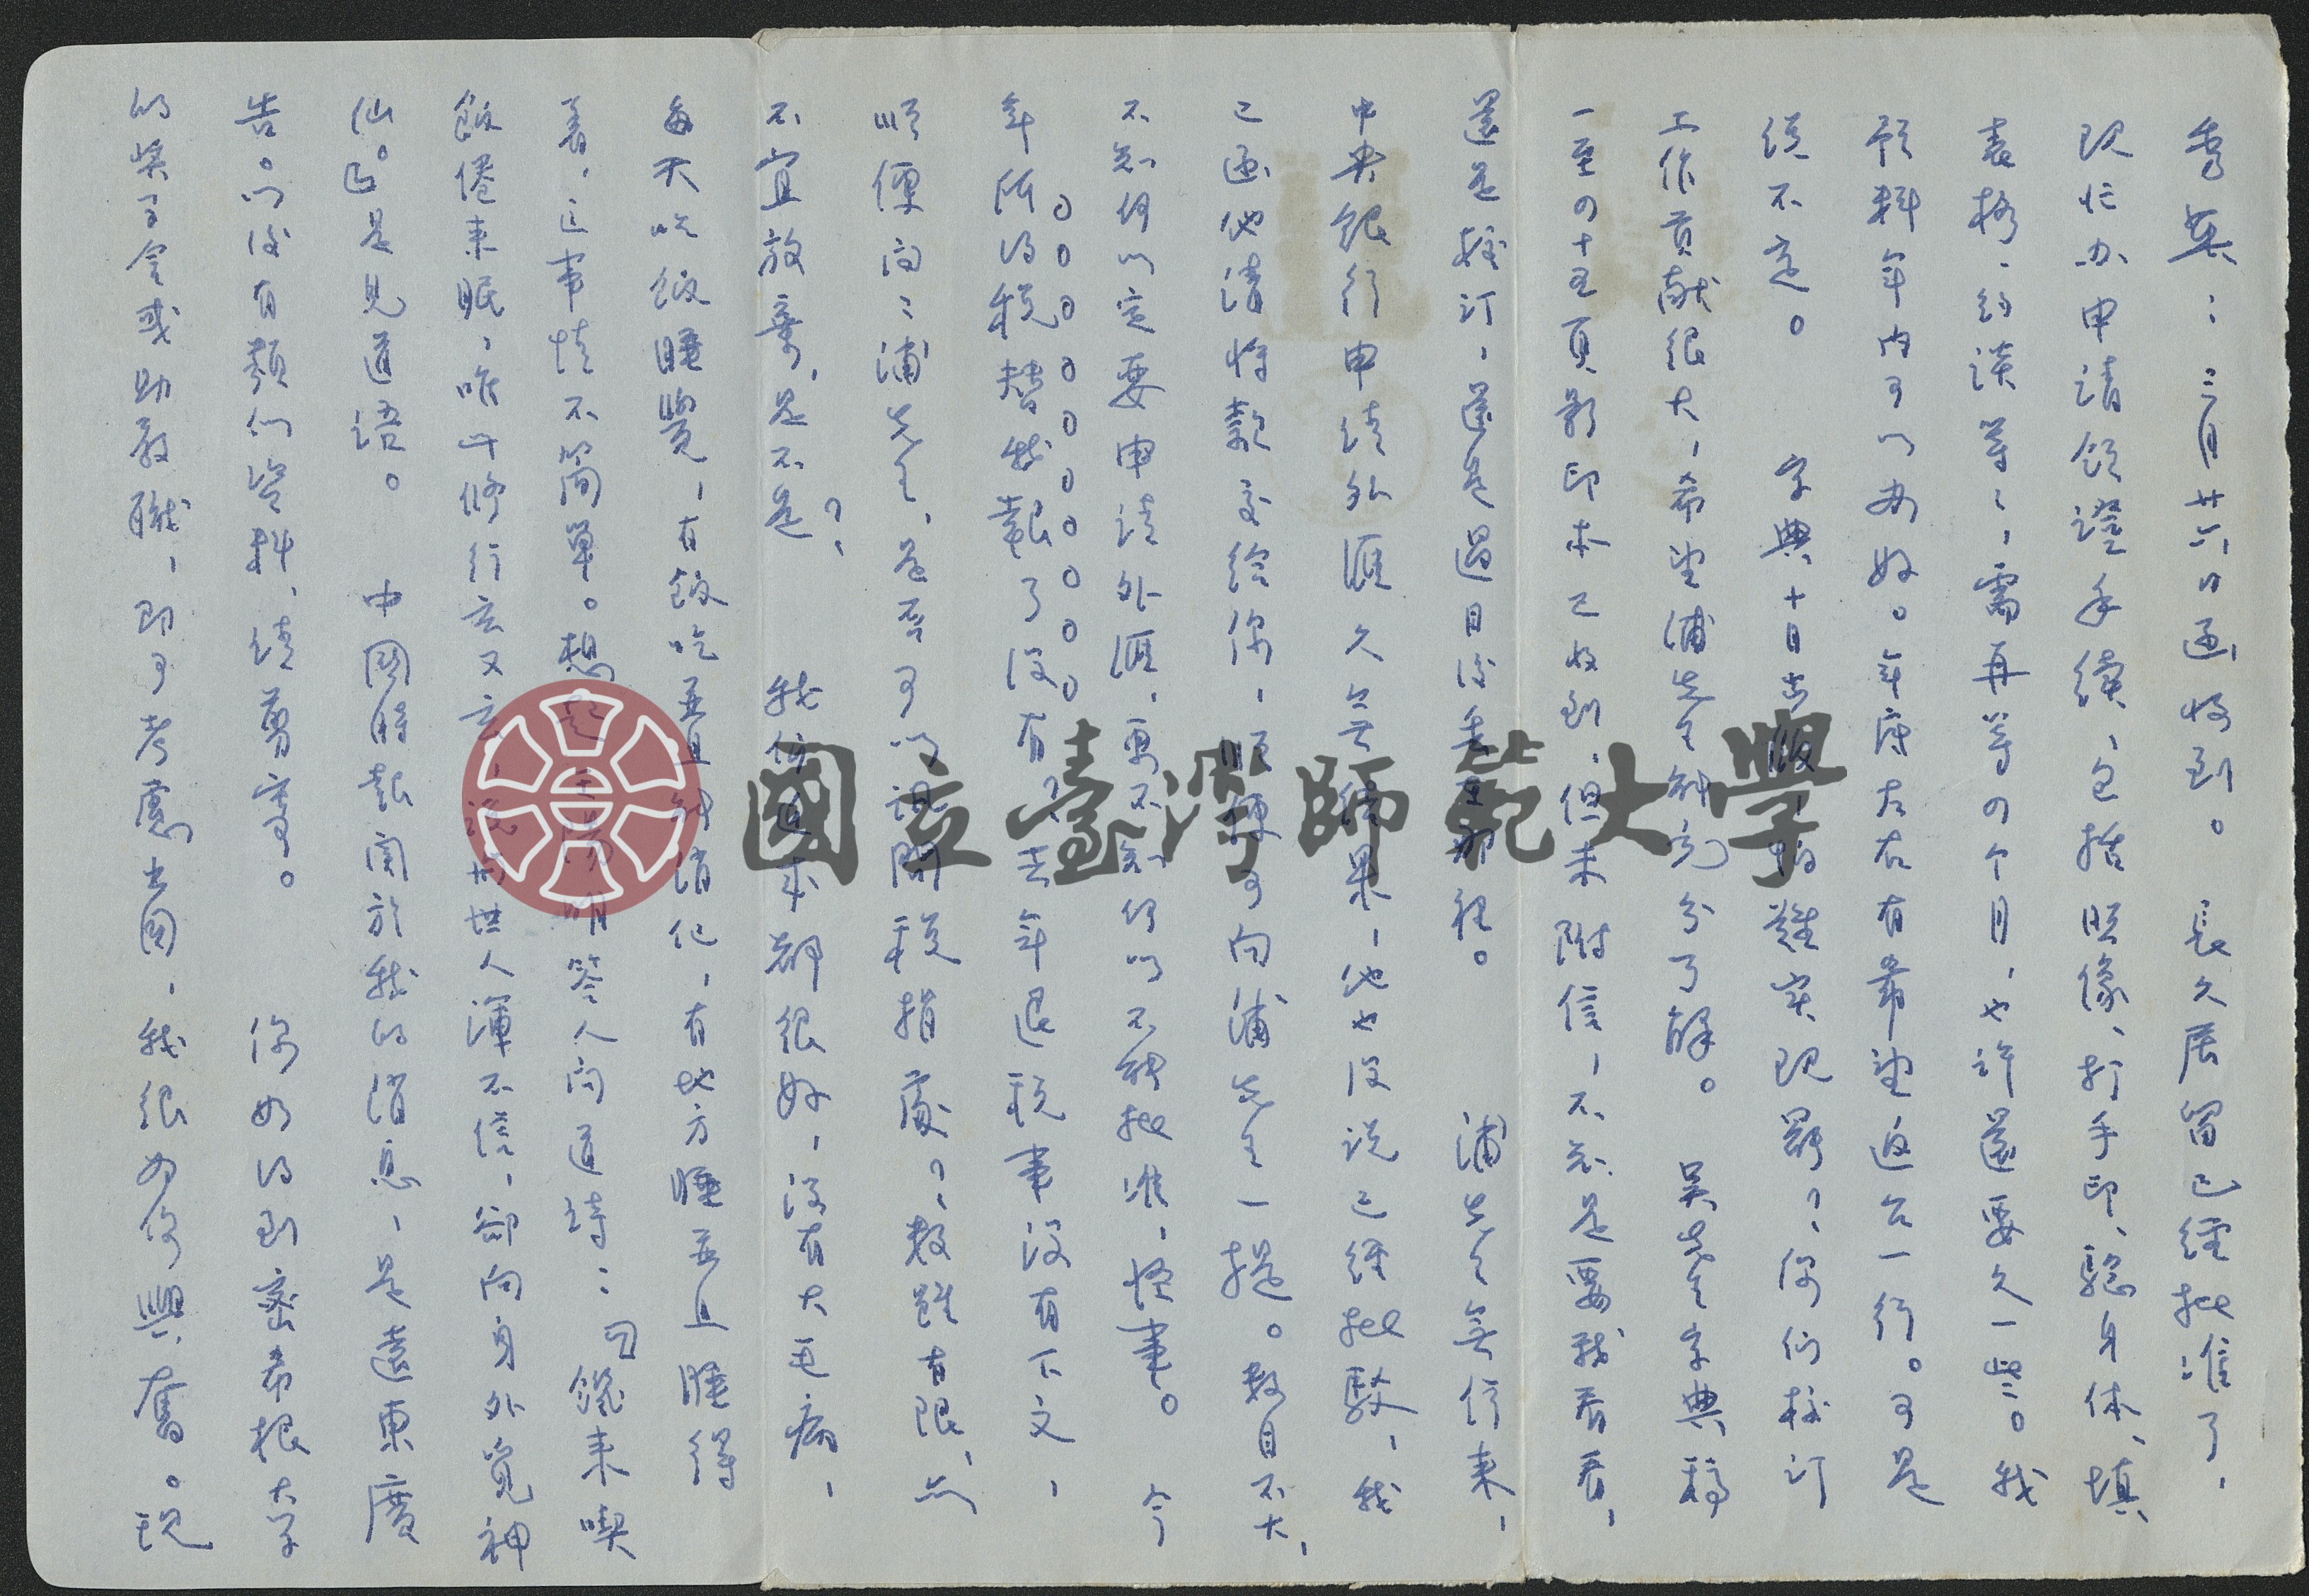 秀英：三月廿六日函收到。長久居留已經批准了，
現忙办申请領證手續，包括照像、打手印、驗身体、填
表格、約談等，需再等四个月，也许還要久一些。我
預料年内可以办好。年底左右有希望返台一行。可是
说不定。　字典十月出版，難実現罷？你们校訂
工作貢献很大，希望浦先生能充分了解。　吳先生字典稿
一至四十五頁影印本已收到，但未附信，不知是要我看看，
還是校订，還是過目後
浦先生無信來，
中央銀行申请外匯久無結果，他也没说已經批駁，我
已函他请将款交给你，順便可向浦先生一提。數目不大，
不知何以定要申请外匯，更不知何以不能批准，怪事。今
年所得税替我報了没有？去年退税事没有下文，
順便问浦先生，是否可以
税捐處？數雖有限，亦
不宜放棄，是不是？　我们近來都很好，没有大毛病，
每天吃飯睡覺，有飯吃並且能消化，有地方睡並且睡得
着，这事情不简單。想起王陽明答人问道诗：「饑來喫
飯倦來眠，唯此修行玄又玄，说與世人渾不信，卻向身外覓神
仙。」是見道语。　中國時報関於我的消息，是遠東廣
告。以後有類似资料，请剪寄。　你如得到密希根大学
的獎学金或助教職，即可考慮出國，我很為你興奮。現
國立臺灣師範大學